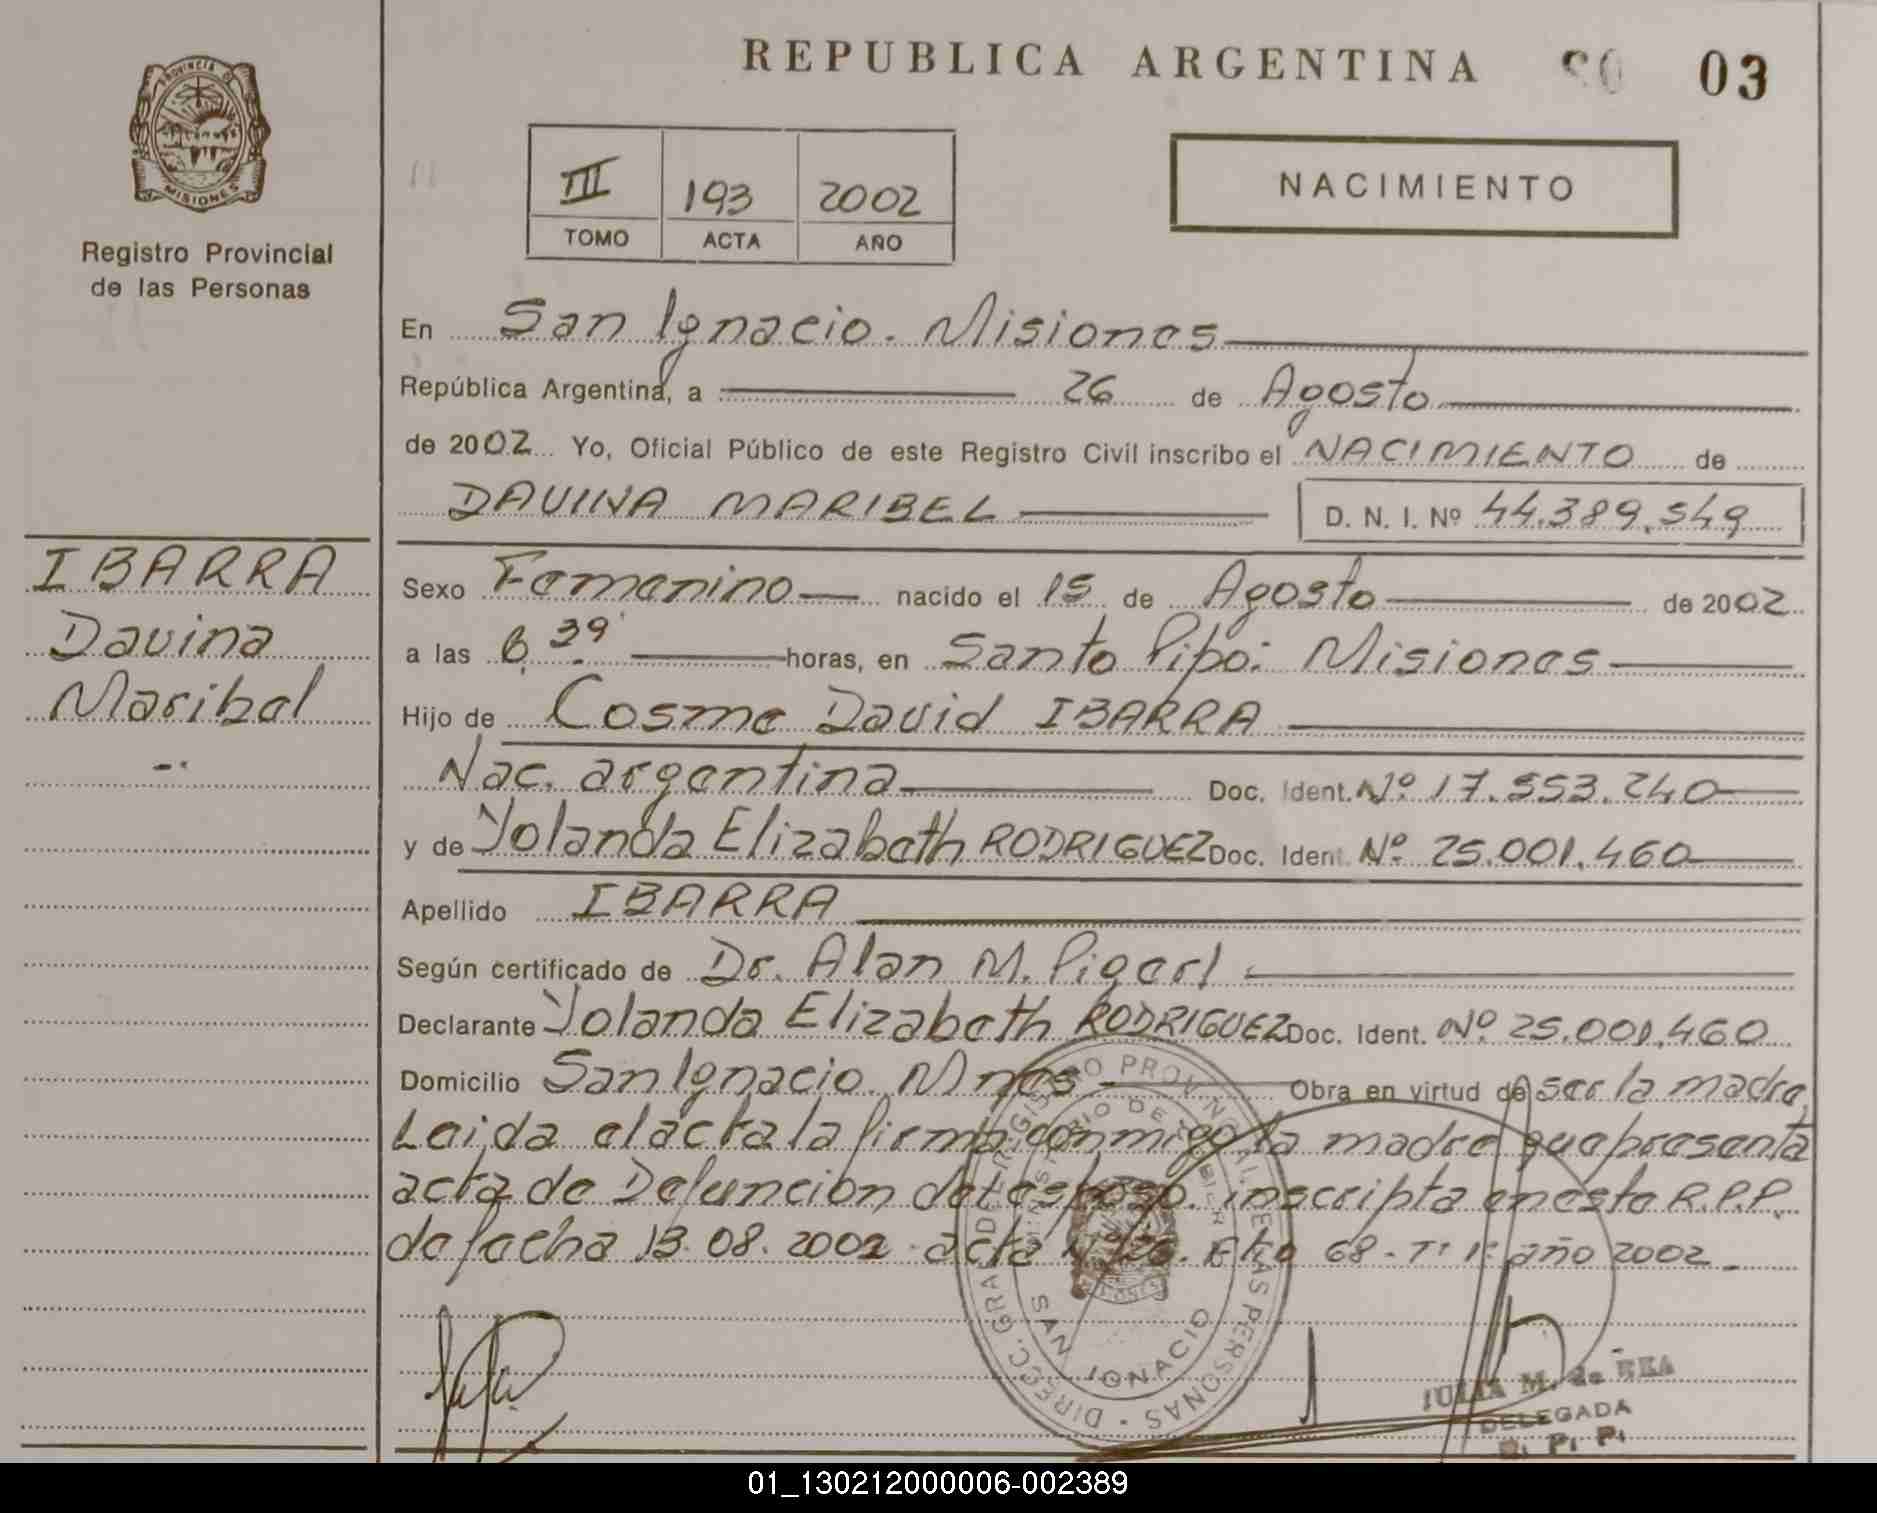 REPUBLICA ARGENTINA 03
PROVINCIA DE MISIONES
Registro Provincial
de las Personas
III 193 2002
TOMO ACTA AÑO
NACIMIENTO
En San Ignacio. Misiones
República Argentina, a 26 de Agosto
de 2002 Yo, Oficial Público de este Registro Civil inscribo el NACIMIENTO de
DAVINA MARIBEL D. N. I. Nº 44.389.549
IBARRA
Davina
Maribel
Sexo Femenino nacido el 15 de Agosto de 2002
a las 6,39 horas, en Santo Pipó. Misiones
Hijo de Cosme David IBARRA
Nac. argentina Doc. Ident. Nº 17.553.240
y de Yolanda Elizabeth RODRIGUEZ Doc. Ident. Nº 25.001.460
Apellido IBARRA
Según certificado de Dr. Alan M.
Declarante Yolanda Elizabeth RODRIGUEZ Doc. Ident. Nº 25.001.460
Domicilio San Ignacio. Mnes Obra en virtud de ser la madre,
Leida el acta la firma conmigo la madre que presenta
acta de Defunción del esposo. inscripta en este R.P.P.
de fecha 13.08.2002. acta 68 - Tº 1º año 2002
DIRECC. GRAL DEL REGISTRO PROVINCIAL DE LAS PERSONAS
SAN IGNACIO
JULIA M. de
DELEGADA
R. P. P.
01_130212000006-002389